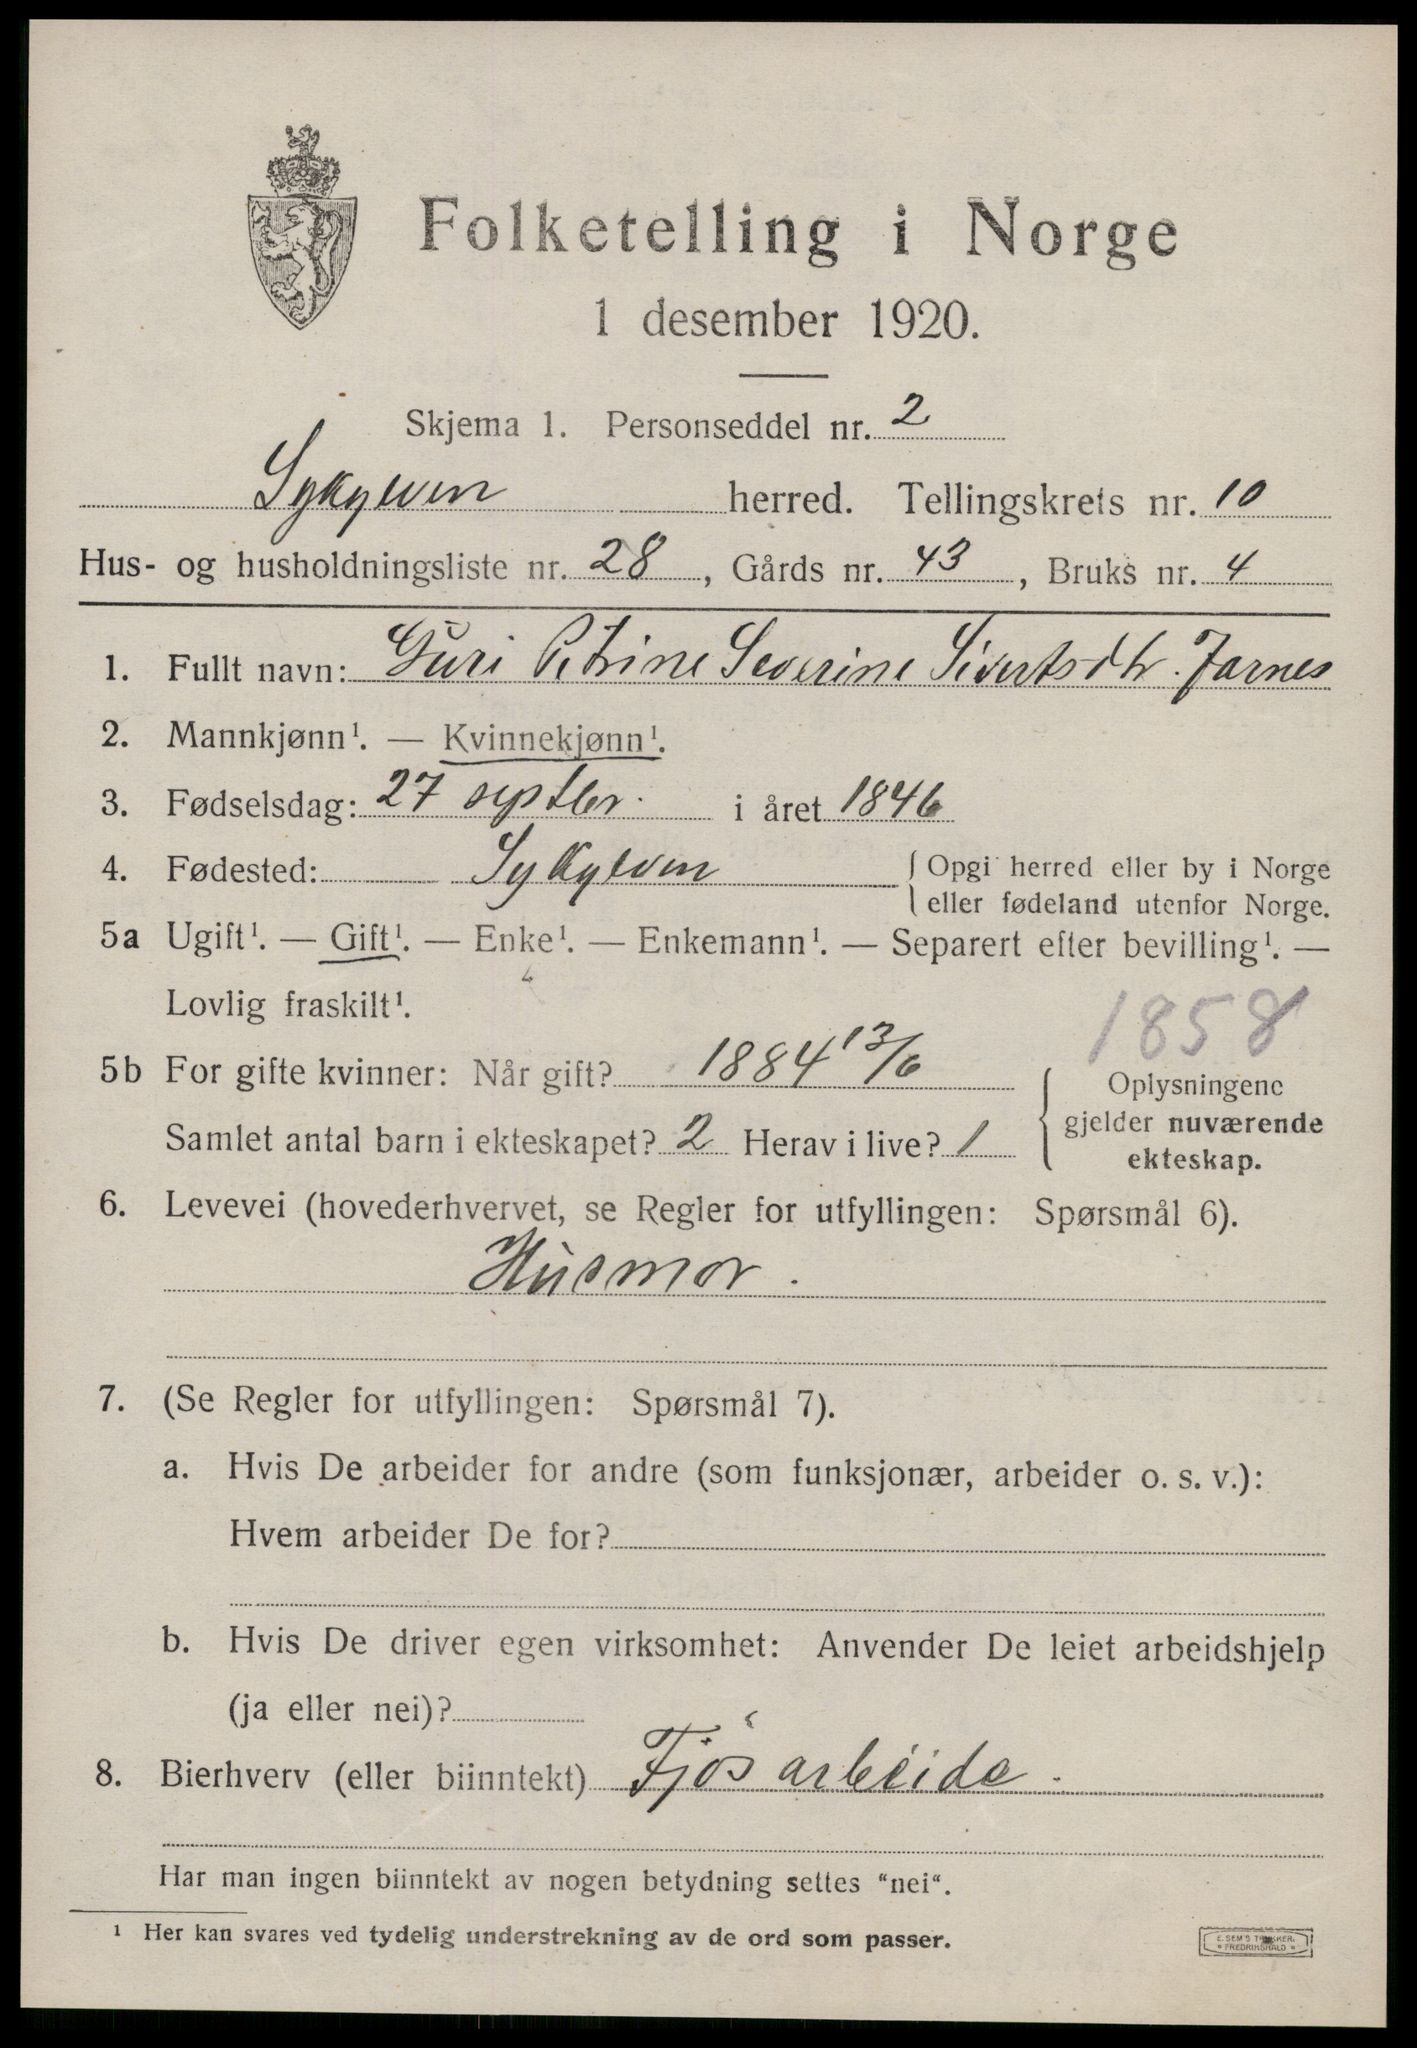 Folketelling i Norge
1 desember 1920.
Skjema 1. Personseddel nr. 2
Sykylven herred. Tellingskrets nr. 10
Hus- og husholdningsliste nr. 28, Gårds nr. 43, Bruks nr. 4
1. Fullt navn: Guri Petrine Severine Sivertsdtr. Jarnes
2. Mannkjønn¹. — Kvinnekjønn¹.
3. Fødselsdag: 27 septbr. i året 1846
4. Fødested: Sykylven { Opgi herred eller by i Norge
eller fødeland utenfor Norge.
5a Ugift¹. — Gift¹. — Enke¹. — Enkemann¹. — Separert efter bevilling¹. —
Lovlig fraskilt¹.
1858
5b For gifte kvinner: Når gift? 1884 13/6
Samlet antal barn i ekteskapet? 2 Herav i live? 1
{ Oplysningene
gjelder nuværende
ekteskap.
6. Levevei (hovederhvervet, se Regler for utfyllingen: Spørsmål 6).
Husmor.
7. (Se Regler for utfyllingen: Spørsmål 7).
a. Hvis De arbeider for andre (som funksjonær, arbeider o. s. v.):
Hvem arbeider De for?
b. Hvis De driver egen virksomhet: Anvender De leiet arbeidshjelp
(ja eller nei)?
8. Bierhverv (eller biinntekt) Fjósarbeide.
Har man ingen biinntekt av nogen betydning settes "nei".
¹ Her kan svares ved tydelig understrekning av de ord som passer.
E. SEM'S TRYKKERI
FREDRIKSHALD